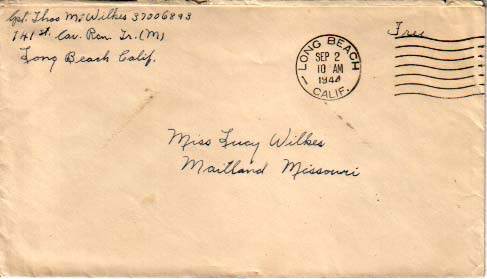 Cpl. Thos M. Wilkes 37006893
141st. Cav. Rcn. Tr. (M)
Long Beach Calif.
LONG BEACH
SEP 2
10 AM
1944
CALIF.
1
Free
Miss Lucy Wilkes
Maitland Missouri